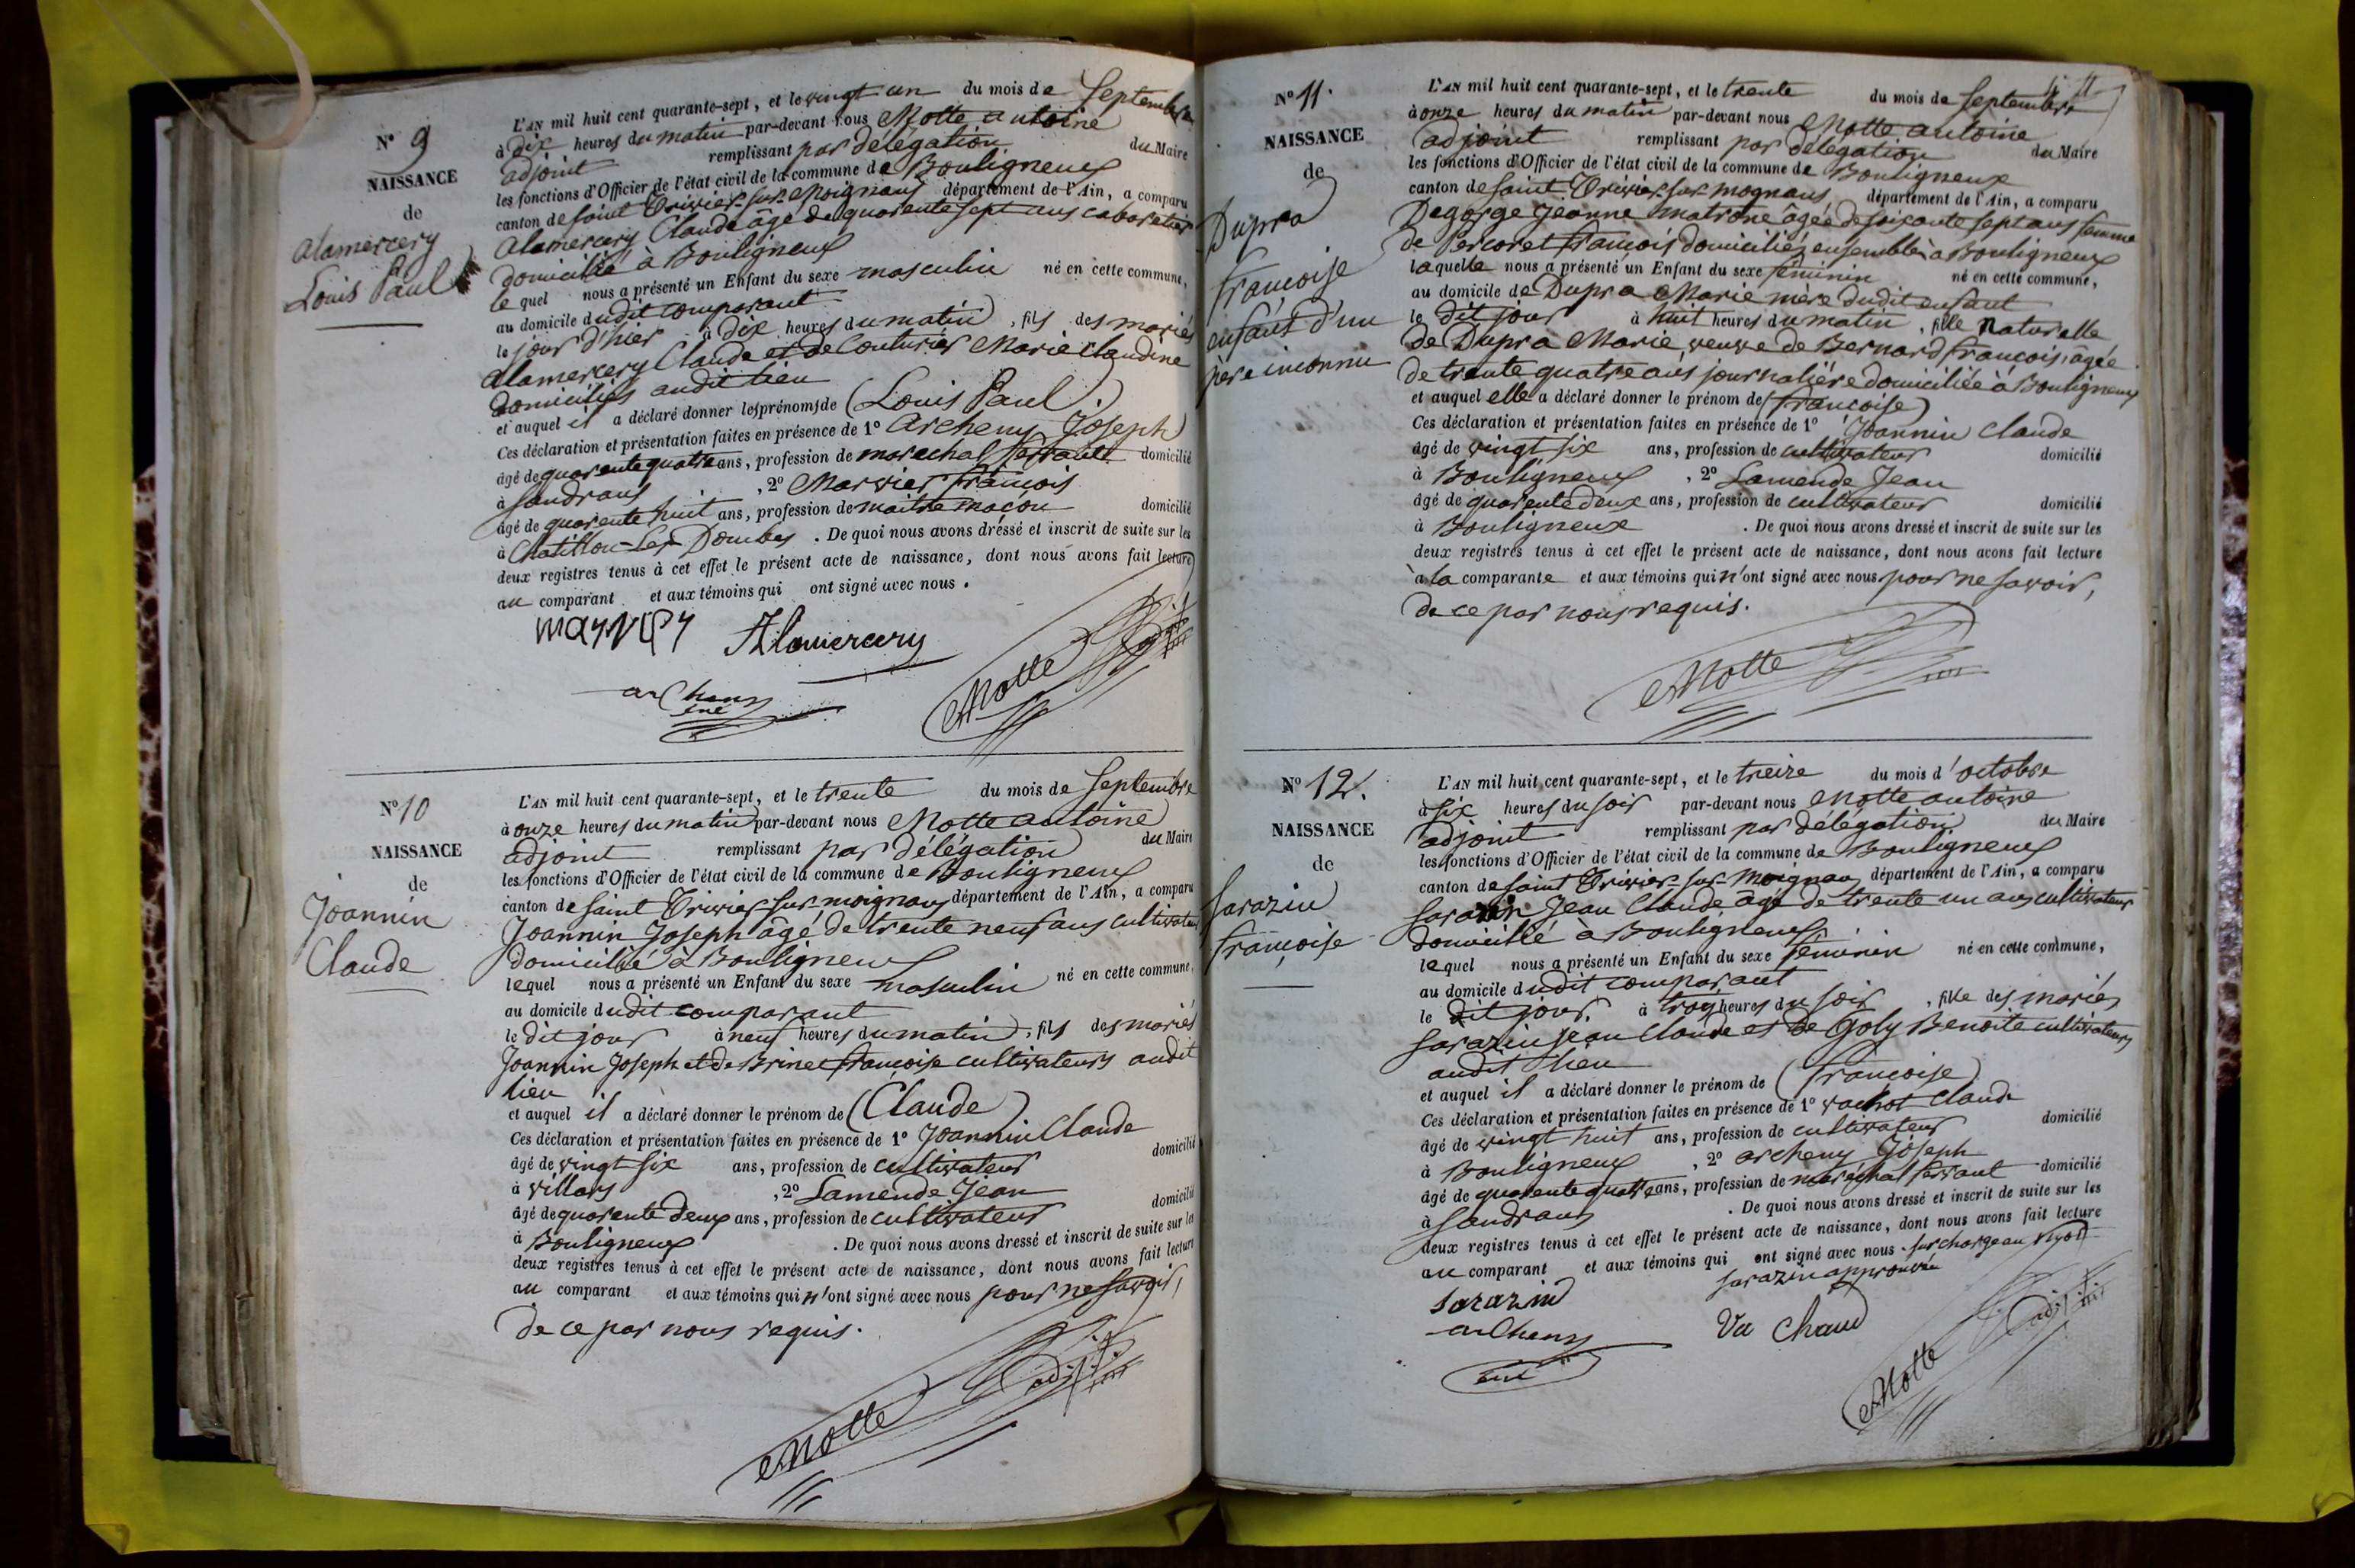 N° 9
NAISSANCE
de
Alamercery
Louis Paul
L'AN mil huit cent quarante-sept, et le vingt un du mois de Septembre
à dix heures du matin par-devant nous Motte antoine
adjoint remplissant par délégation du Maire
les fonctions d'Officier de l'état civil de la commune de Bouligneux
canton de Saint Trivier-sur-Moignans département de l'Ain, a comparu
Alamercery Claude âgé de quarente sept ans cabaretier
domicilié à Bouligneux
le quel nous a présenté un Enfant du sexe masculin né en cette commune,
au domicile dudit comparant
le jour d'hier à dix heures du matin, fils des mariés
Alamercery Claude et de Couturier Marie Claudine
domiciliés audit lieu
et auquel il a déclaré donner les prénoms de (Louis Paul)
Ces déclaration et présentation faites en présence de 1° Archeny Joseph
âgé de quarente quatre ans, profession de marechal ferrant domicilié
à Sandrans, 2° Marvier françois
âgé de quarente huit ans, profession de maitre maçon domicilié
à Chatillon-les-Dombes. De quoi nous avons dressé et inscrit de suite sur les
deux registres tenus à cet effet le présent acte de naissance, dont nous avons fait lecture
au comparant et aux témoins qui ont signé avec nous.
Alamercery
archeny
Motte adj.
N° 10
NAISSANCE
de
Joannin
Claude
L'AN mil huit cent quarante-sept, et le trente du mois de Septembre
à onze heures du matin par-devant nous Motte antoine
adjoint remplissant par délégation du Maire
les fonctions d'Officier de l'état civil de la commune de Bouligneux
canton de Saint Trivier sur-moignans département de l'Ain, a comparu
Joannin Joseph âgé de trente neuf ans cultivateur
domicilié à Bouligneux
lequel nous a présenté un Enfant du sexe masculin né en cette commune,
au domicile dudit comparant
le dit jour à neuf heures du matin, fils des mariés
Joannin Joseph et de Brinet françoise cultivateurs audit
lieu
et auquel il a déclaré donner le prénom de (Claude)
Ces déclaration et présentation faites en présence de 1° Joannin Claude
âgé de vingt six ans, profession de cultivateur domicilié
à Villars, 2° Lamende Jean
âgé de quarente deux ans, profession de cultivateur domicilié
à Bouligneux. De quoi nous avons dressé et inscrit de suite sur les
deux registres tenus à cet effet le présent acte de naissance, dont nous avons fait lecture
au comparant et aux témoins qui n'ont signé avec nous pour ne savoir,
de ce par nous requis.
Motte adj.
N° 11.
NAISSANCE
de
Dupra
françoise
enfant d'un
père inconnu
L'AN mil huit cent quarante-sept, et le trente du mois de Septembre
à onze heures du matin par-devant nous Motte antoine
adjoint remplissant par délégation du Maire
les fonctions d'Officier de l'état civil de la commune de Bouligneux
canton de Saint Trivier-sur-mognans, département de l'Ain, a comparu
Degorge Jeanne matrone âgée de soixante sept ans femme
de Percoret francois domiciliés ensemble à Bouligneux
laquelle nous a présenté un Enfant du sexe féminin né en cette commune,
au domicile de Dupra Marie mère dudit enfant
le dit jour à huit heures du matin, fille naturelle
de Dupra Marie, veuve de Bernard, francois, âgée
de trente quatre ans journalière domiciliée à Bouligneux
et auquel elle a déclaré donner le prénom de (françoise)
Ces déclaration et présentation faites en présence de 1° Joannin Claude
âgé de vingt six ans, profession de cultivateur domicilié
à Bouligneux, 2° Lamende Jean
âgé de quarente deux ans, profession de cultivateur domicilié
à Bouligneux. De quoi nous avons dressé et inscrit de suite sur les
deux registres tenus à cet effet le présent acte de naissance, dont nous avons fait lecture
à la comparante et aux témoins qui n'ont signé avec nous pour ne savoir,
de ce par nous requis.
Motte
N° 12.
NAISSANCE
de
Sarazin
françoise
L'AN mil huit cent quarante-sept, et le treize du mois d'octobre
à six heures du soir par-devant nous Motte antoine
adjoint remplissant par délégation du Maire
les fonctions d'Officier de l'état civil de la commune de Bouligneux
canton de Saint Trivier-sur-Moignans département de l'Ain, a comparu
Sarazin Jean Claude âgé de trente un ans cultivateur
domicilié à Bouligneux
lequel nous a présenté un Enfant du sexe féminin né en cette commune,
au domicile dudit comparant
le dit jour à trois heures du soir, fille des mariés
Sarazin Jean Claude et de Goly Benoite cultivateurs
audit lieu
et auquel il a déclaré donner le prénom de (françoise)
Ces déclaration et présentation faites en présence de 1° Vachot Claude
âgé de vingt huit ans, profession de cultivateur domicilié
à Bouligneux, 2° archeny Joseph
âgé de quarente quatre ans, profession de maréchal ferrant domicilié
à Sandrans. De quoi nous avons dressé et inscrit de suite sur les
deux registres tenus à cet effet le présent acte de naissance, dont nous avons fait lecture
au comparant et aux témoins qui ont signé avec nous. surcharge au
Sarazin approuvée
Sarazin
archeny
Va Chaud
Motte adj.